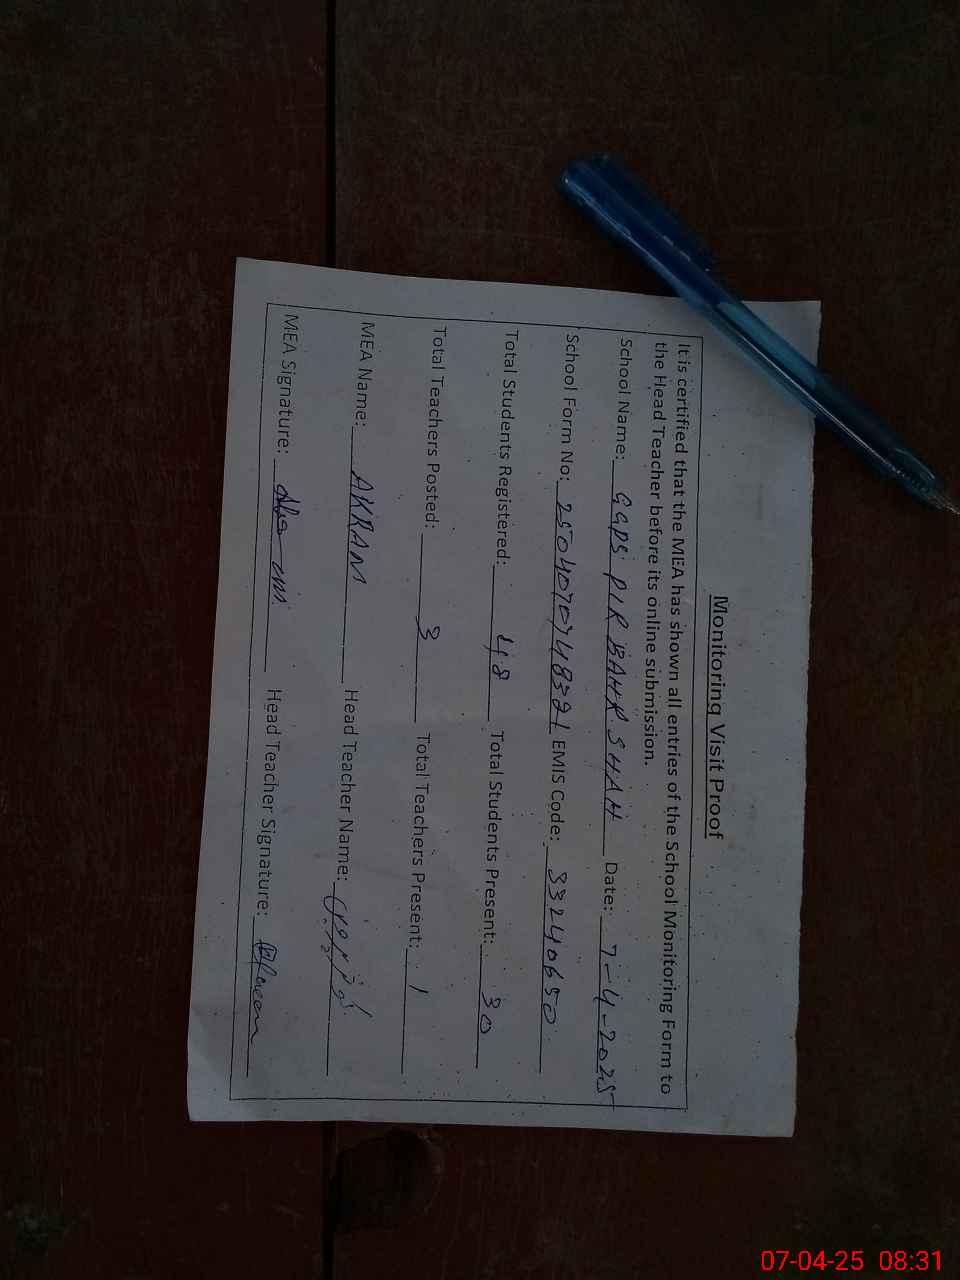 Monitoring Visit Proof
It is certified that the MEA has shown all entries of the School Monitoring Form to
the Head Teacher before its online submission.
School Name: GGPS PIR BAHR SHAH Date: 7-4-2025
School Form No: 2504070748321 EMIS Code: 33240650
Total Students Registered: 48 Total Students Present: 30
Total Teachers Posted: 3 Total Teachers Present: 1
MEA Name: AKRAM Head Teacher Name:
MEA Signature: Head Teacher Signature:
07-04-25 08:31